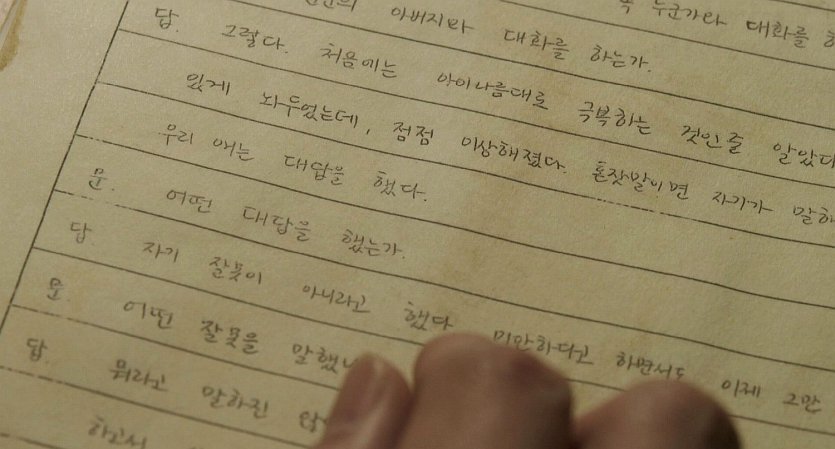 누군가와 대화를
아버지와 대화를 하는가.
답. 그렇다. 처음에는 아이나름대로 극복하는 것인줄 알았다
있게 놔두었는데, 점점 이상해졌다. 혼잣말이면 자기가 말하
우리 애는 대답을 했다.
문. 어떤 대답을 했는가.
답 자기 잘못이 아니라고 했다 미안하다고 하면서도 이제 그만
문. 어떤 잘못을 말했
답. 뭐라고 말하진
하고서